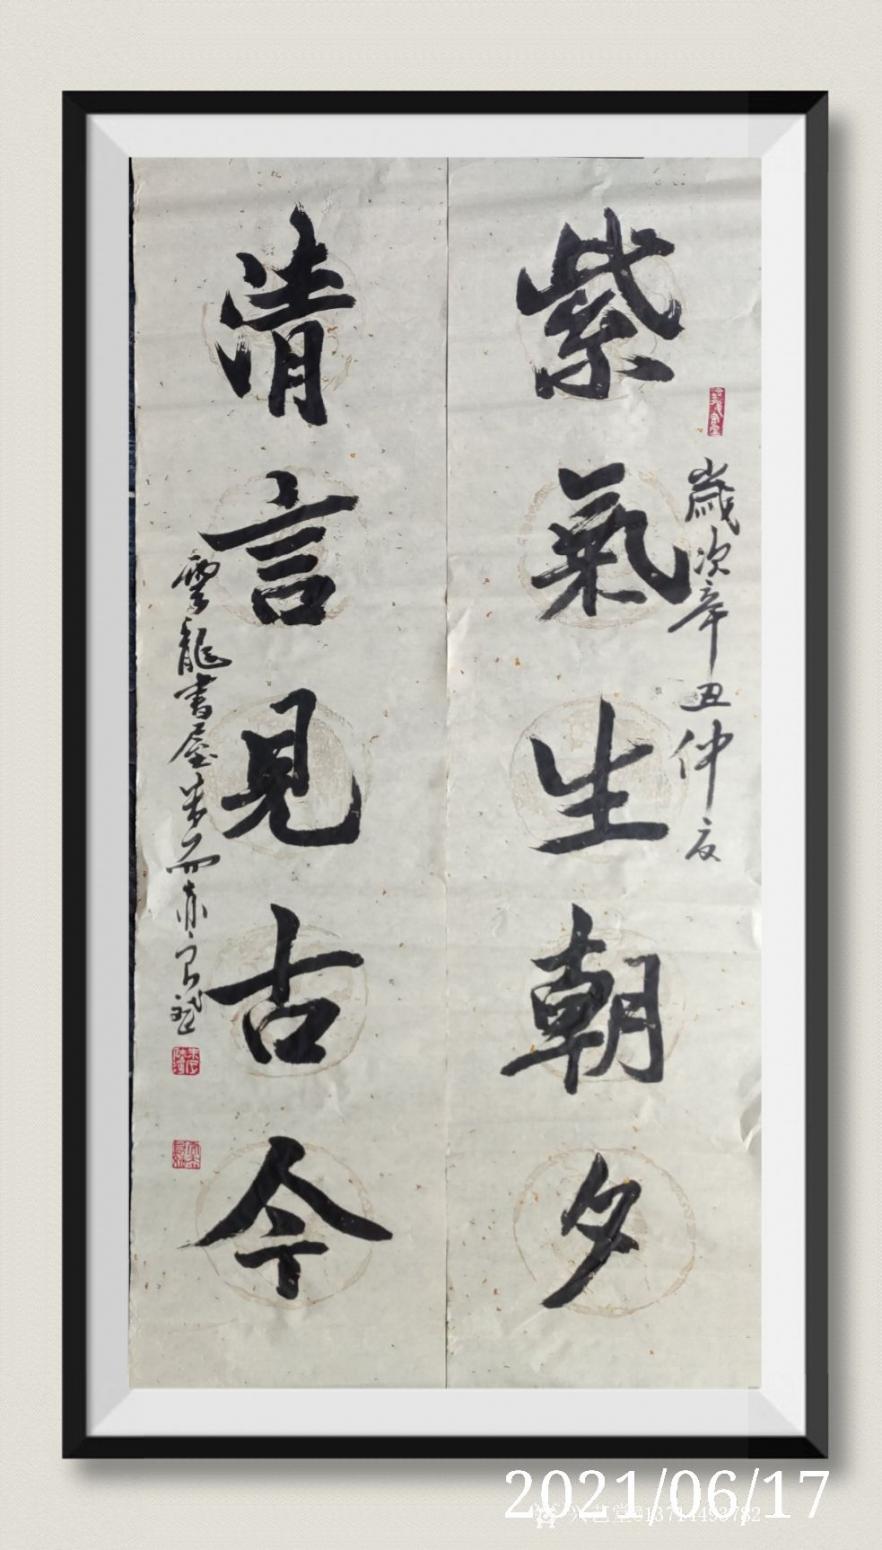 紫氣生朝夕
歲次辛丑仲夏
清言見古今
雲龍書屋
2021/06/17
兴艺堂@13714493782